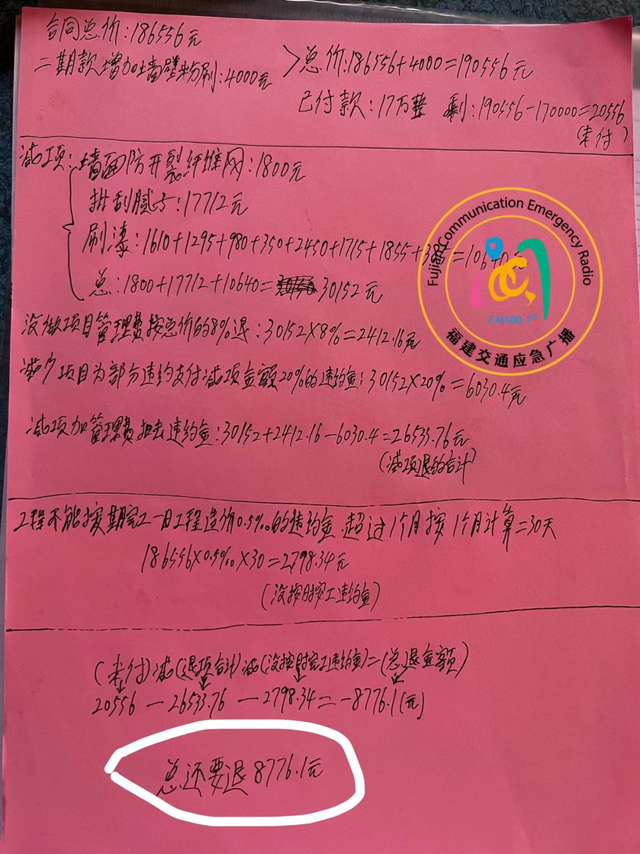 合同总价:186556元
二期款增加墙壁粉刷:4000元
>总价:186556+4000=190556元
已付款:17万整 剩:190556-170000=20556
(未付)
减项:墙面防开裂纤维网:1800元
批刮腻子:17712元
刷漆:1610+1295+980+350+2450+1715+1855+385=10640元
总:1800+17712+10640=30152元
没做项目管理费按总价的8%退:30152×8%=2412.16元
减少项目为部分违约支付减项金额20%的违约金:30152×20%=6030.4元
减项加管理费扣去违约金:30152+2412.16-6030.4=26533.76元
(减项退的合计)
工程不能按期完工一日工程造价0.5‰的违约金,超过1个月按1个月计算=30天
186556×0.5‰×30=2798.34元
(没按时完工违约金)
(未付)减(退项合计)减(没按时完工违约金)=(总退金额)
20556-26533.76-2798.34=-8776.1(元)
总还要退8776.1元
Fujian Communication Emergency Radio
FM100.7
福建交通应急广播